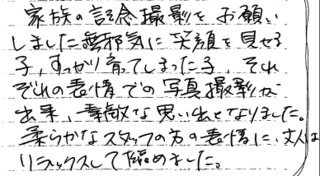 家族の記念撮影をお願い
しました無邪気に笑顔を見せる
子,すっかり育ってしまった子,それ
ぞれの表情での写真撮影が
出来,素敵な思い出となりました。
柔らかなスタッフの方の表情に,主人は
リラックスして臨めました。